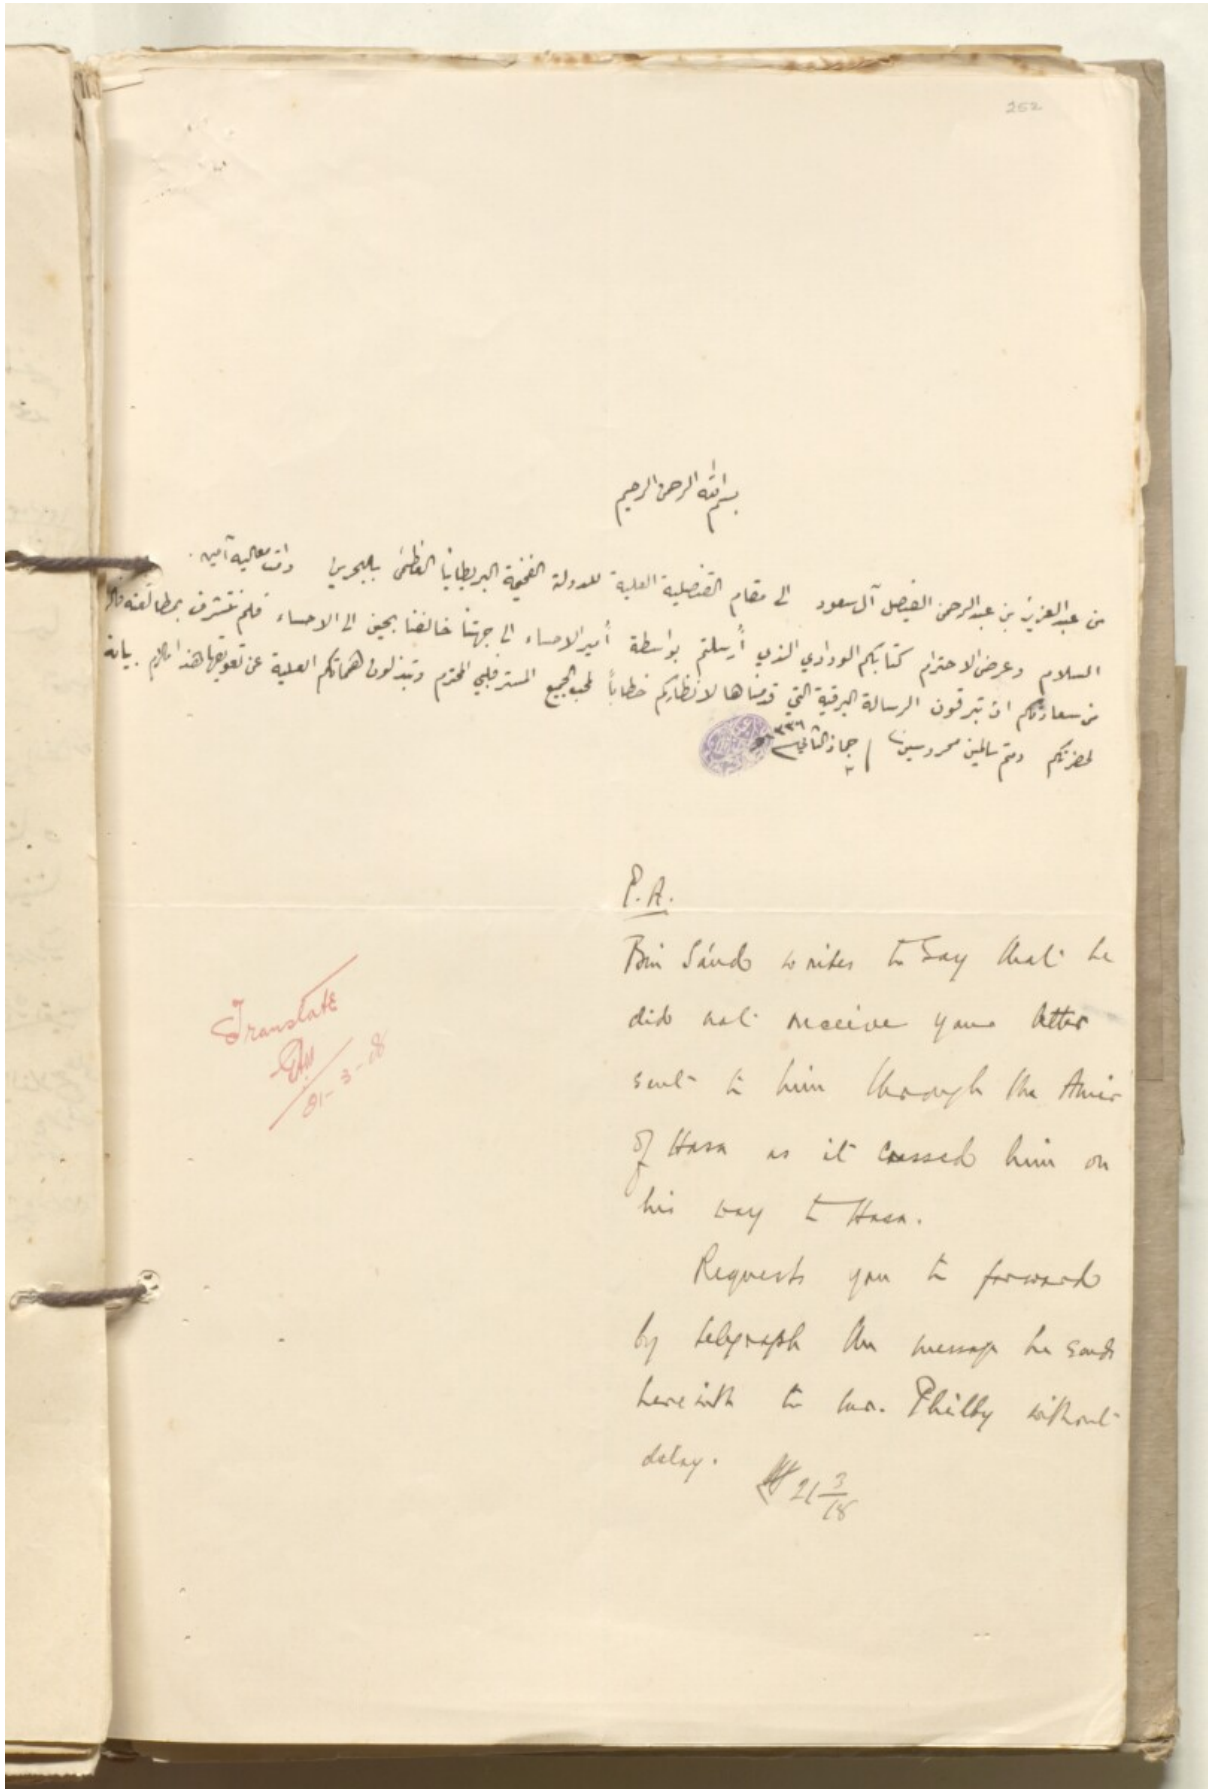 252
بسم الله الرحمن الرحيم
من عبد العزيز بن عبد الرحمن الفيصل آل سعود الى مقام القنصلية العلية للدولة الفخيمة البريطانيا العظمى بالبحرين دامت معاليه آمين.
السلام وعرض الاحترام كتابكم الودادي الذي أرسلتم بواسطة أمير الاحساء الى جهتنا خالفنا بحين الى الاحساء فلم نتشرف بمطالعته
من سعادتكم ان تبرقون الرسالة البرقية التي قدمناها لانظاركم خطاباً لمحب الجميع المستر فلبي المحترم وتبذلون هماتكم العلية عن تعويقها هذا مالزم بيانه
لحضرتكم ودمتم سالمين محروسين جماد الثاني ١٣٣٦
P.A.
Bin Sáud writes to say that he
did not receive your letter
sent to him through the Amir
of Hasa as it crossed him on
his way to Hasa.
Requests you to forward
by telegraph the message he sends
herewith to Mr. Philby without
delay.
21 3/18
Translate
21-3-18